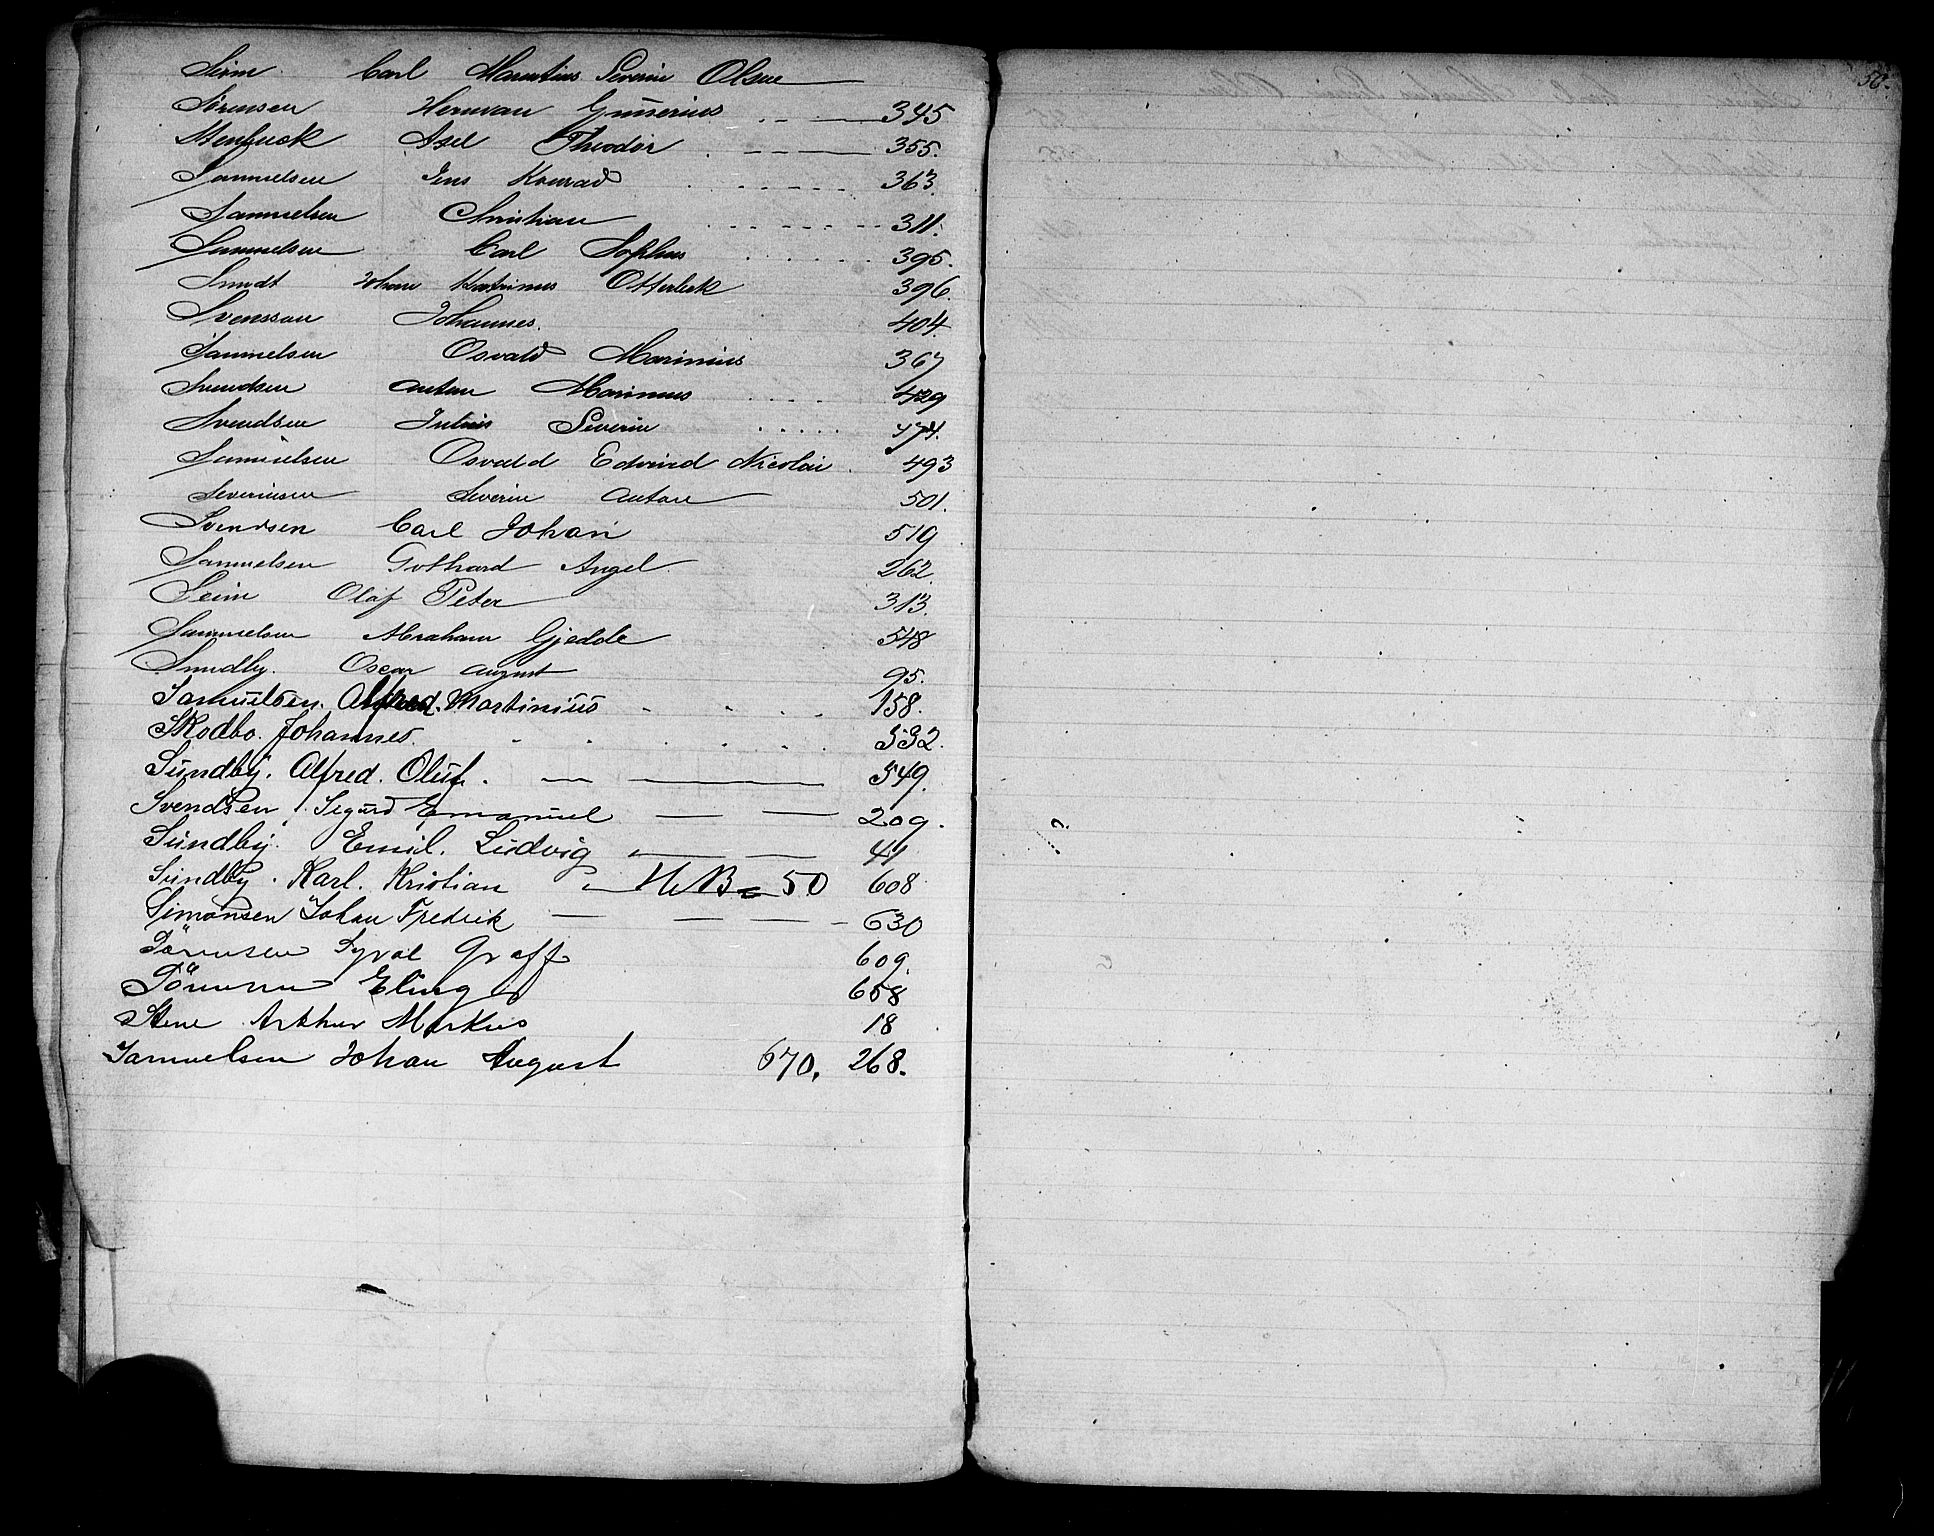 Seim Carl Martius Severin Olsen
Sørensen Herman Gunerius 345
Stenbuck Axel Theodor 355.
Samuelsen Jens Konrad 363.
Samuelsen Christian 311.
Samuelsen Carl Sophus 395.
Smidt Johan Katrinus Otterbeck 396.
Svenssan Johannes. 404.
Samuelsen Osvald Marinius 367
Svendsen Anton Marinus 429
Svendsen Julius Severin 474.
Samuelsen Osvald Edvind Nicolai 493
Severinsen Severin Anton 501.
Svendsen Carl Johan 519
Samuelsen Gothard Angel 262.
Seim Olaf Peter 313.
Samuelsen Abraham Gjedde 548
Sundby. Oscar August 95.
Samuelsen. Alfred. Martinius 158.
Skodbo. Johannes. 532.
Sundby. Alfred. Oluf. 549.
Svendsen. Sigurd Emanuel 209.
Sundby. Emil. Ludvig 41
Sundby. Karl. Kristian 50 608
Simonsen Johan Fredrik 630
Sørensen Syval Graff 609.
Sörensen Eling 658
Stene Arthur Markus 18
Samuelsen Johan August 670. 268.
50.